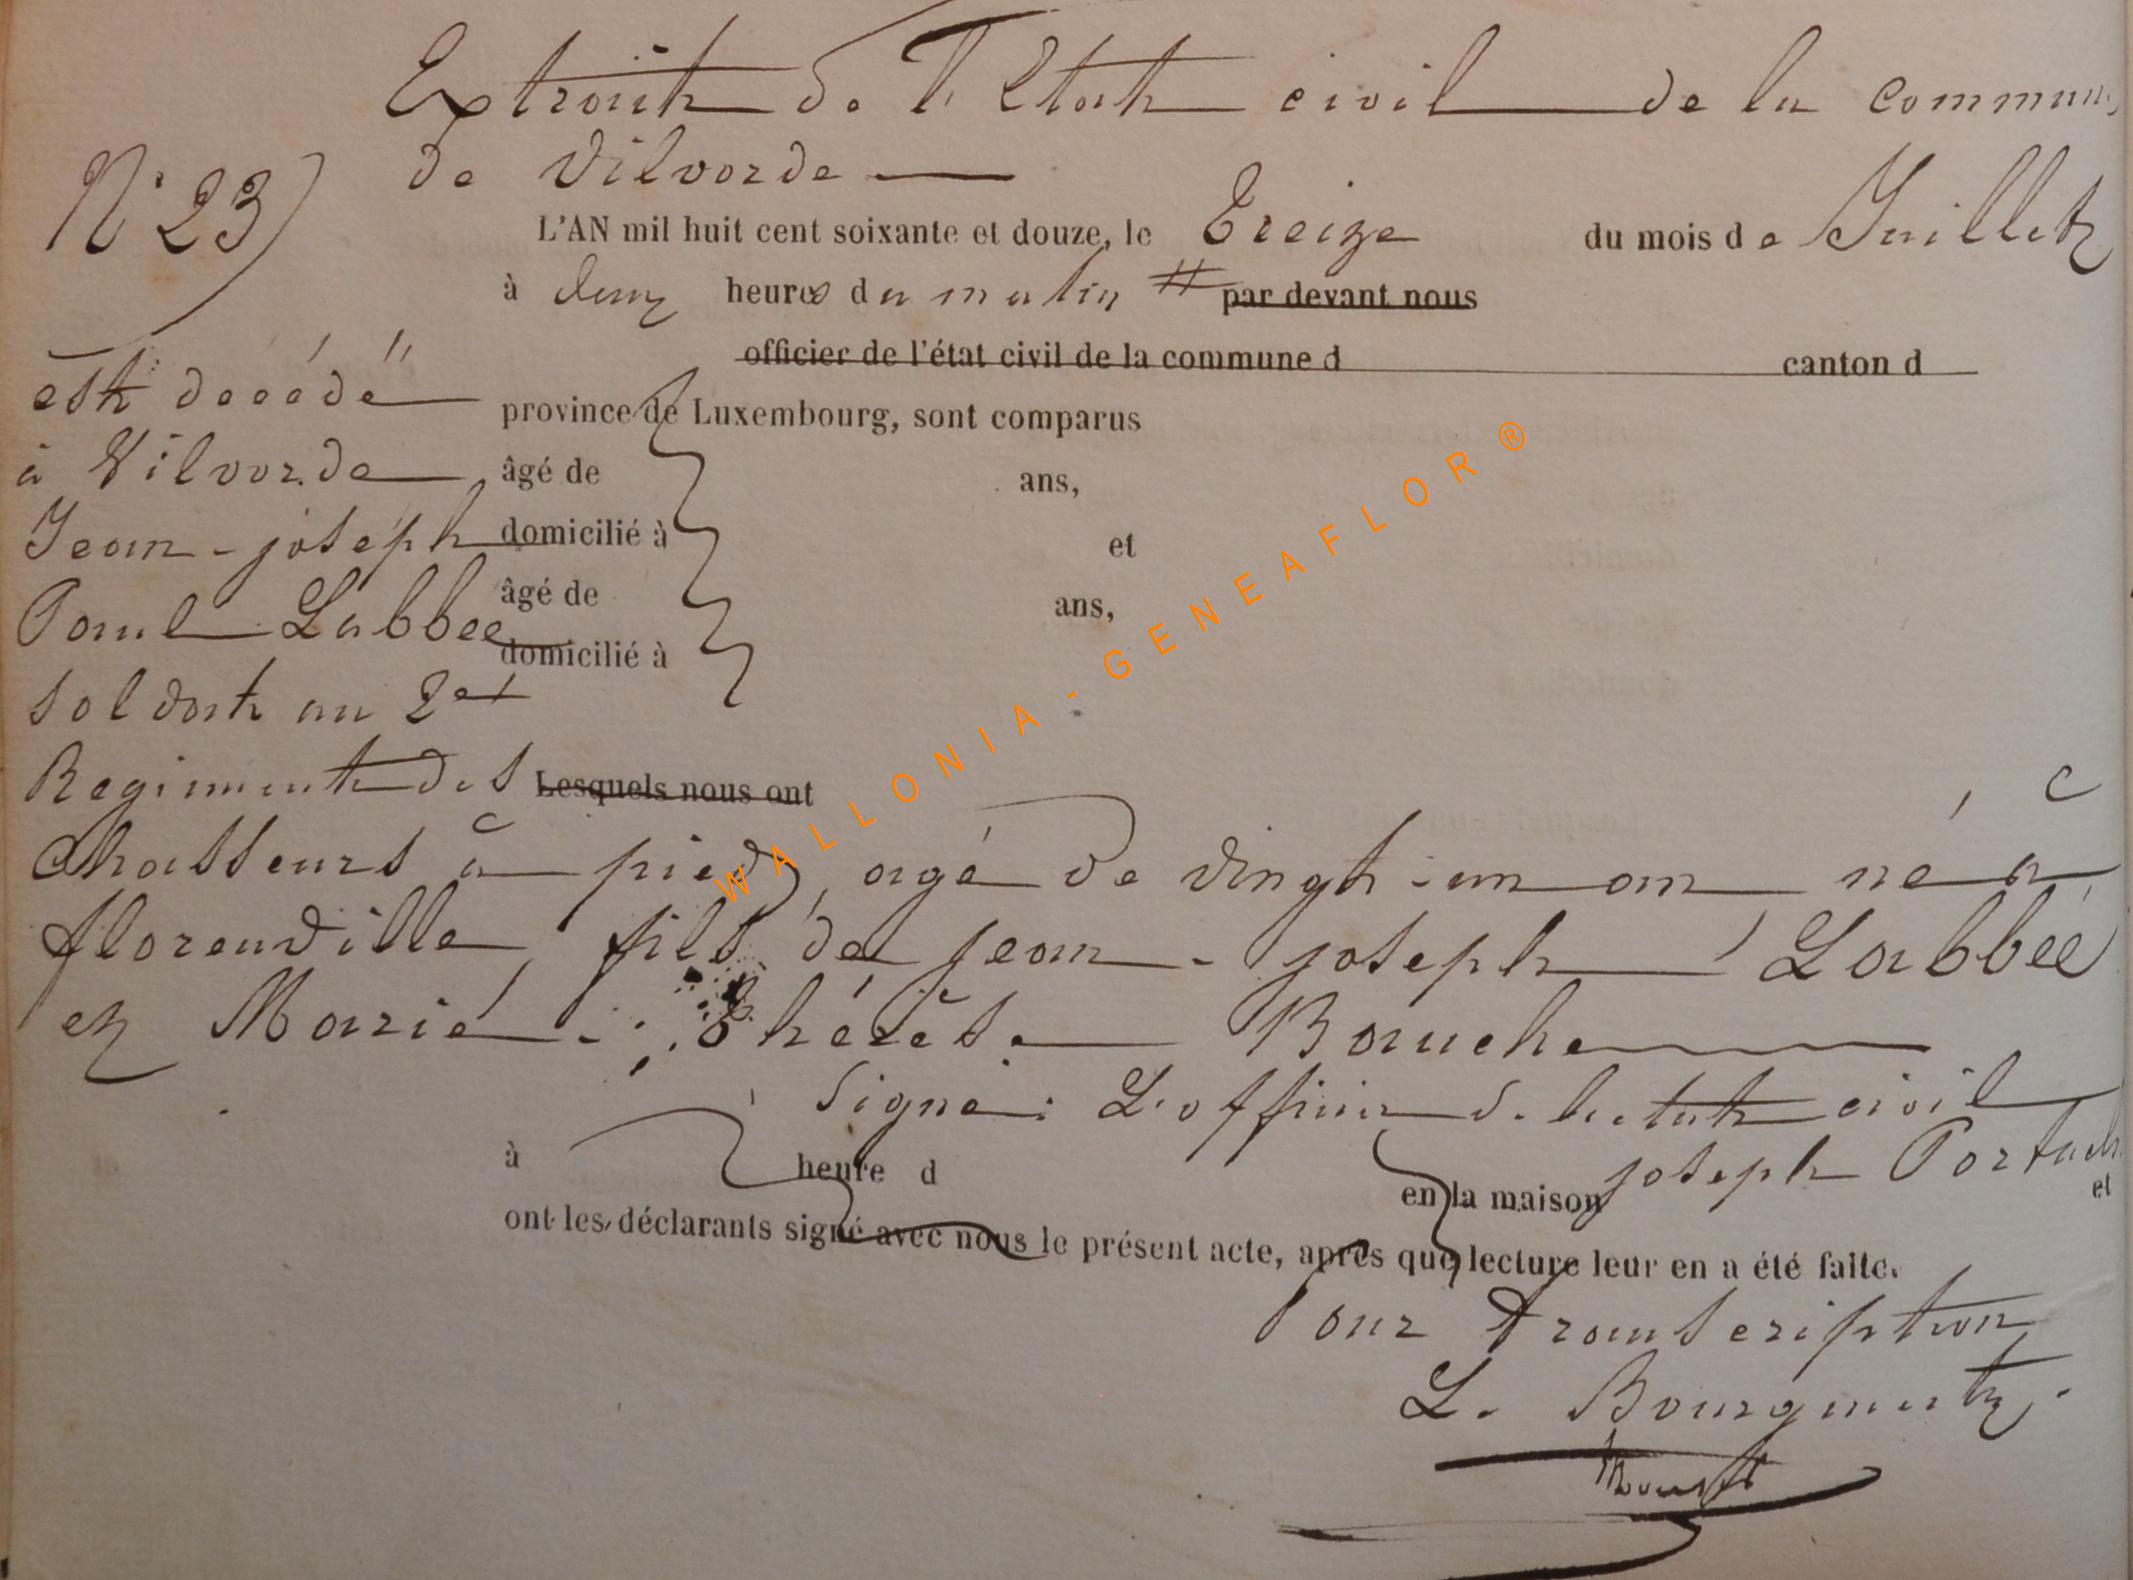 Extrait de l'Etat civil de la commune
de Vilvorde
N° 23
L'AN mil huit cent soixante et douze, le Treize du mois de Juillet
à deux heures du matin # par devant nous
officier de l'état civil de la commune d canton d
est décédé
province de Luxembourg, sont comparus
à Vilvorde
âgé de ans,
Jean-joseph
domicilié à et
Paul Labbée
âgé de ans,
domicilié à
soldat au 2e
Regiment des
Lesquels nous ont
Chasseurs à pied, agé de vingt-un an né à
florenville fils de jean-joseph Labbée
et Marie-Thérèse Bauche
Signé: L'officier de l'etat civil
joseph
à heure d en la maison et
ont les déclarants signé avec nous le présent acte, après que lecture leur en a été faite.
Pour transcription
L. Bourgmestre.
WALLONIA - GENEAFLOR ®